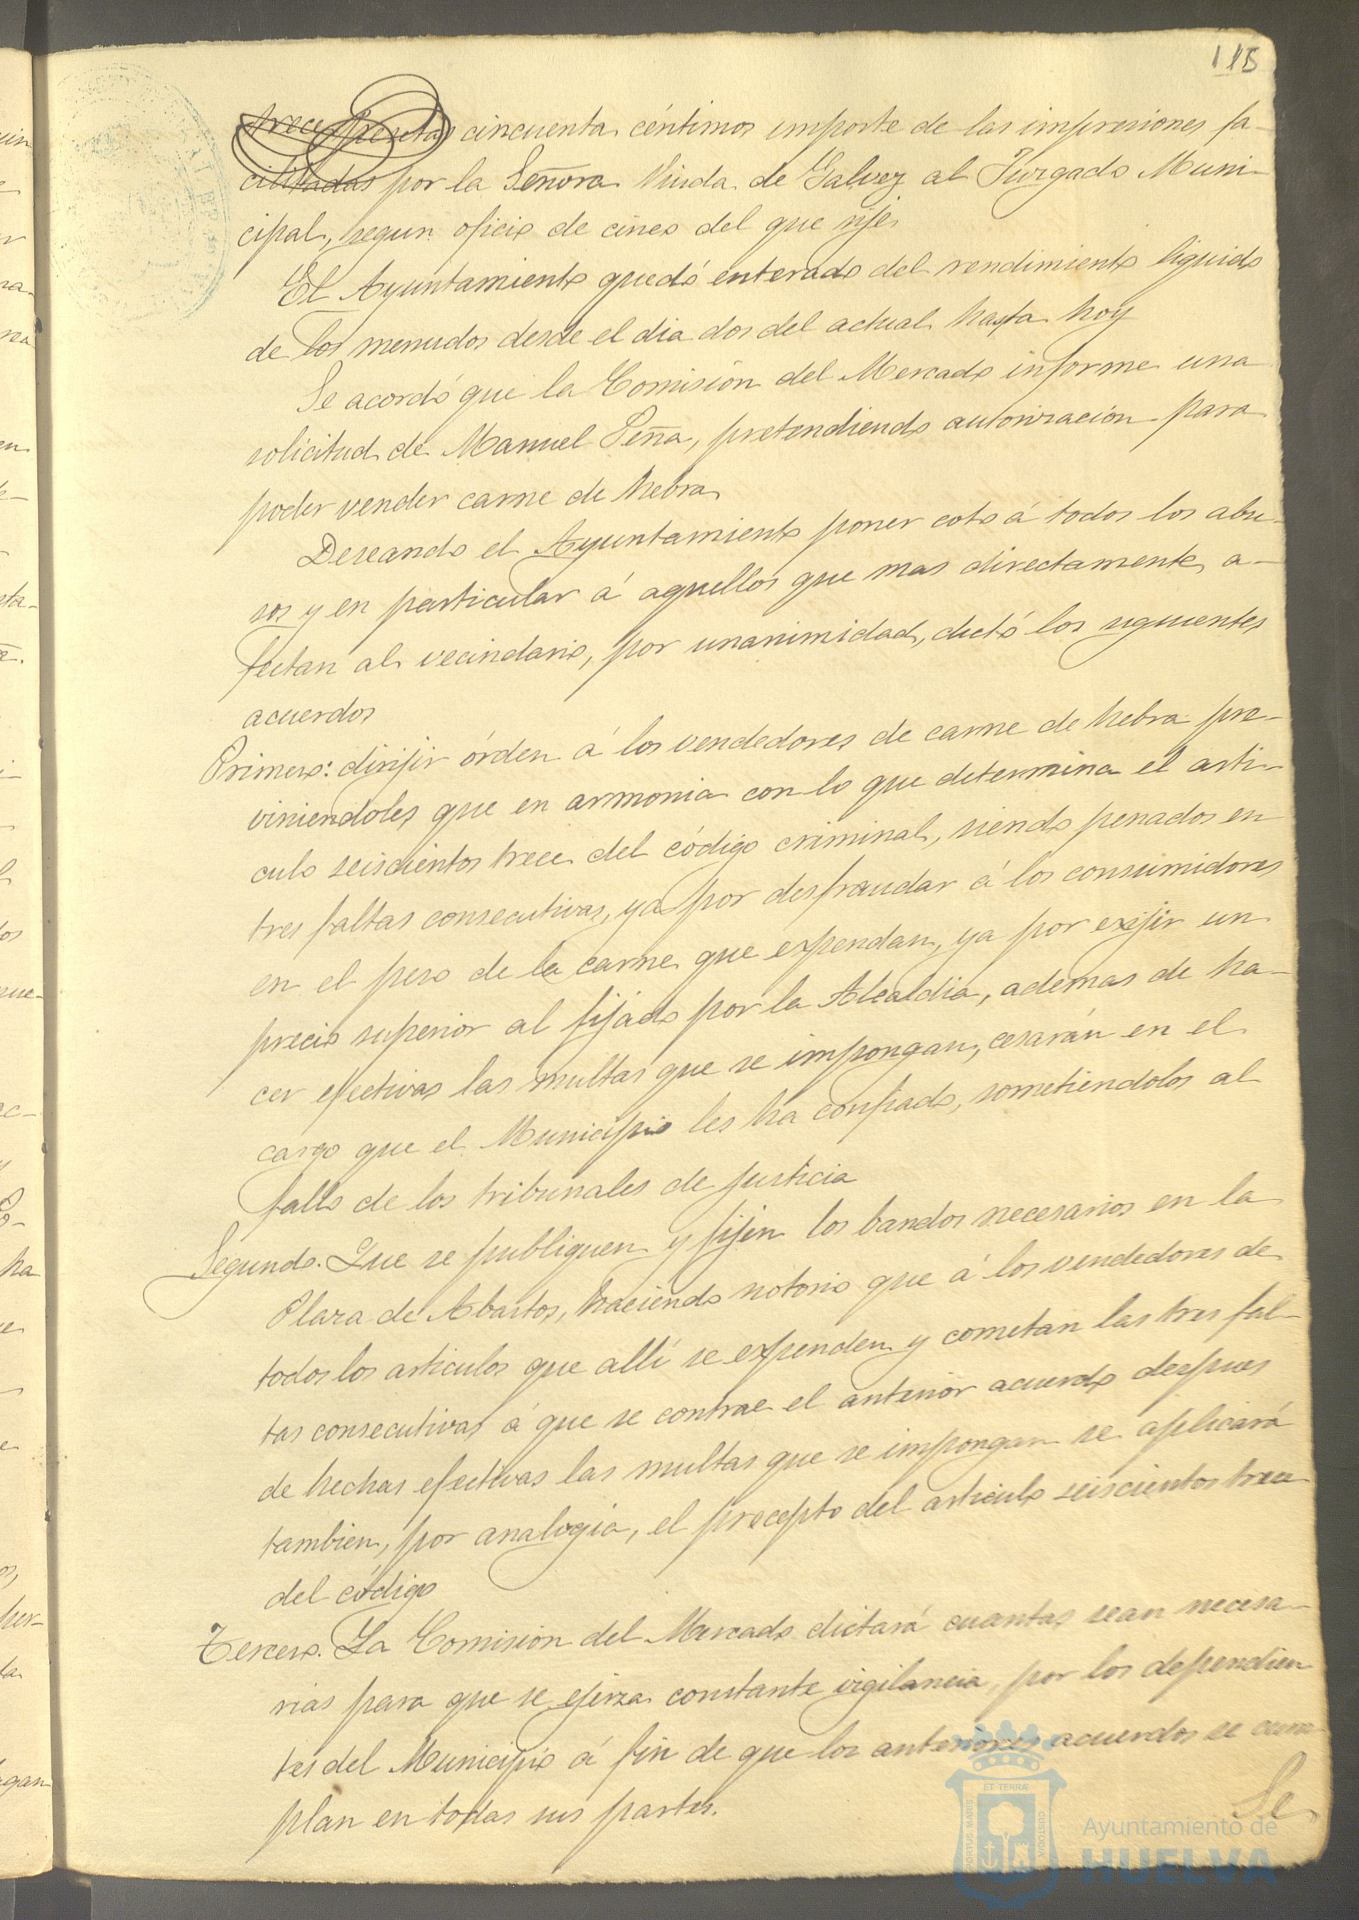 115
trece pesetas cincuenta céntimos importe de las impresiones fa-
cilitadas por la Señora Viuda de Galvez al Juzgado Muni-
cipal, segun oficio de cinco del que rije.
El Ayuntamiento quedó enterado del rendimiento liquido
de los menudos desde el dia dos del actual hasta hoy
Se acordó que la Comisión del Mercado informe una
solicitud de Manuel Peña, pretendiendo autorización para
poder vender carne de hebra
Deseando el Ayuntamiento poner coto á todos los abu-
sos y en particular á aquellos que mas directamente a-
fectan al vecindario, por unanimidad, dictó los siguientes
acuerdos
Primero: dirijir órden á los vendedores de carne de hebra pre-
viniendoles que en armonia con lo que determina el arti-
culo seiscientos trece del código criminal, siendo penados en
tres faltas consecutivas, ya por desfraudar á los consumidores
en el peso de la carne que expendan, ya por exijir un
precio superior al fijado por la Alcaldia, ademas de ha-
cer efectivas las multas que se impongan, cesarán en el
cargo que el Municipio les ha confiado, sometiéndolos al
fallo de los tribunales de justicia
Segundo. Que se publiquen y fijen los bandos necesarios en la
Plaza de Abastos, haciendo notorio que á los vendedores de
todos los articulos que allí se expenden y cometan las tres fal-
tas consecutivas á que se contrae el anterior acuerdo despues
de hechas efectivas las multas que se impongan se aplicará
tambien, por analogia, el precepto del articulo seiscientos trece
del código
Tercero. La Comisión del Mercado dictará cuantas sean necesa-
rias para que se ejerza constante vigilancia, por los dependien
tes del Municipio á fin de que los anteriores acuerdos se cum
plan en todas sus partes.
Se
Ayuntamiento de
HUELVA